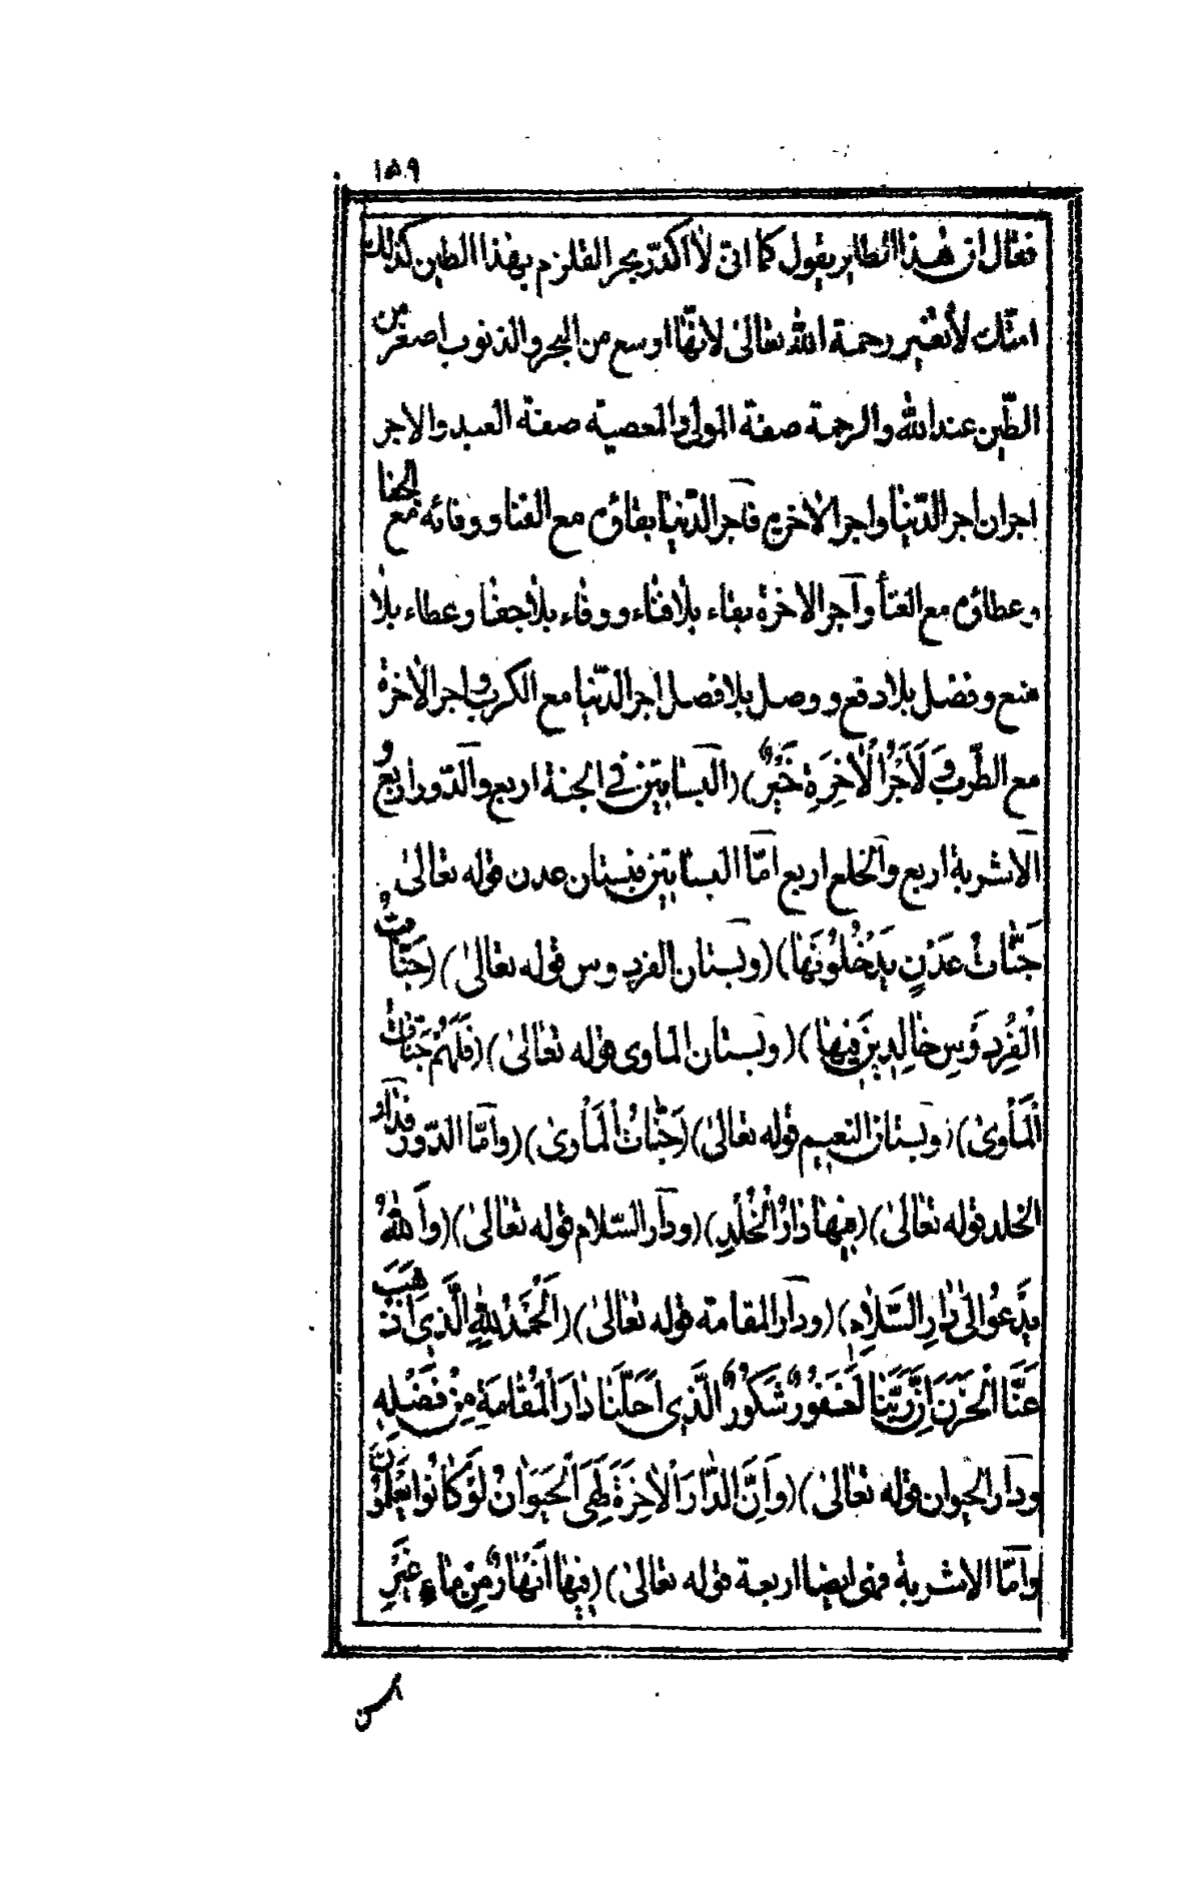 ١٥٩
فقال ان هذا الطاير يقول كما انى لا اكدّر بحر القلزم بهذا الطين كذلك
امتك لا تغير رحمة الله تعالى لانها اوسع من البحر والذنوب اصغر من
الطّين عند الله والرحمة صفة المولى والمعصية صفة العبد والاجر
اجران اجر الدّنيا واجر الاخرة فاجر الدّنيا بقاؤه مع الفنا ووفائه مع الجفا
وعطاؤه مع العنا واجر الاخرة بقاء بلا فناء ووفاء بلا جفا وعطاء بلا
منع وفضل بلا دفع ووصل بلا فصل اجر الدّنيا مع الكرب واجر الاخرة
مع الطّرب وَلَاَجْرُ الْاٰخِرَةِ خَيْرٌ) (البساتين في الجنة اربع والدّور اربع و
الاشربة اربع والخلع اربع امّا البساتين فبستان عدن قوله تعالىٰ
جَنَّاتُ عَدْنٍ يَدْخُلُوْنَهَا) (وبستان الفردوس قوله تعالىٰ) (جَنَّاتُ
الْفِرْدَوْسِ خَالِدِيْنَ فِيْهَا) (وبستان الماوى قوله تعالىٰ) (فَلَهُمْ جَنَّاتُ
الْمَأْوىٰ) (وبستان النعيم قوله تعالىٰ) (جَنَّاتُ الْمَأْوىٰ) (وامّا الدّور فدار
الخلد قوله تعالىٰ) (فِيْهَا دَارُ الْخُلْدِ) (ودار السّلام قوله تعالىٰ) (وَاللّٰهُ
يَدْعُوْا اِلىٰ دَارِ السَّلَامِ) (ودار المقامة قوله تعالىٰ) (اَلْحَمْدُ لِلّٰهِ الَّذِىْ اَذْهَبَ
عَنَّا الْحَزَنَ اِنَّ رَبَّنَا لَغَفُوْرٌ شَكُوْرٌ الَّذِى اَحَلَّنَا دَارَ الْمُقَامَةِ مِنْ فَضْلِهِ
ودار الحيوان قوله تعالىٰ) (وَاِنَّ الدَّارَ الْاٰخِرَةَ لَهِىَ الْحَيَوَانُ لَوْ كَانُوْا يَعْلَمُوْنَ
وامّا الاشربة فهى ايضا اربعة قوله تعالىٰ) (فِيْهَا اَنْهَارٌ مِنْ مَاءٍ غَيْرِ